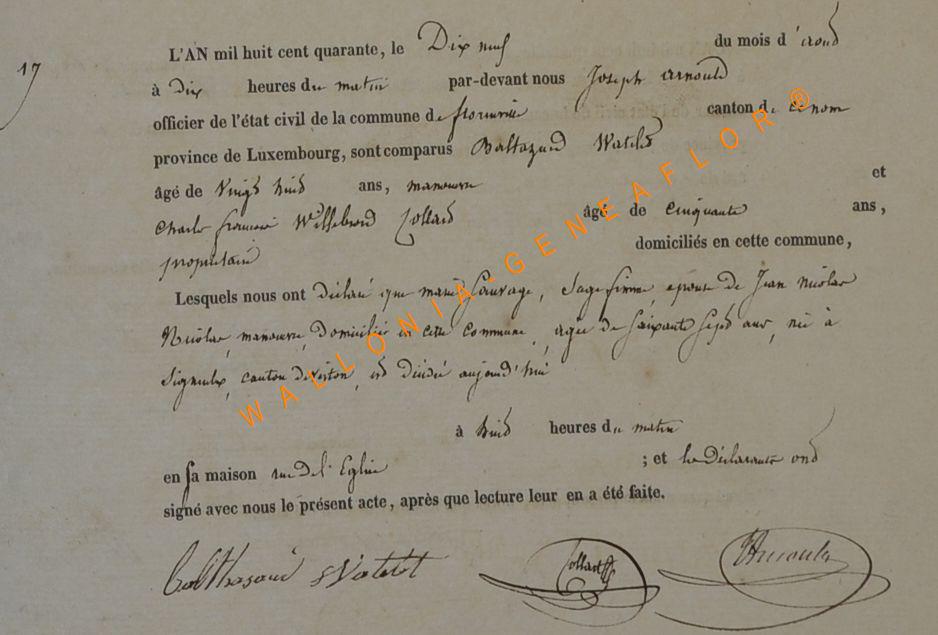 17
L'AN mil huit cent quarante, le Dix neuf du mois d'aoud
à dix heures du matin par-devant nous Joseph Arnould
officier de l'état civil de la commune de florenville canton de ce nom
province de Luxembourg, sont comparus Baltazard Watelet
âgé de Vingt huid ans, manoeuvre et
Charles françois Willebrord Collard âgé de cinquante ans,
propriétaire domiciliés en cette commune,
Lesquels nous ont déclaré que marie Sauvage, Sage femme, épouse de Jean Nicolas
Nicolas, manoeuvre, domiciliée en cette commune, agée de Soixante Sept ans, née à
Signeulx, canton de virton, est décédée aujourd'hui
à huid heures du matin
en sa maison rue de l'Eglise ; et les déclarants ond
signé avec nous le présent acte, après que lecture leur en a été faite.
Watelet Collard Arnould
WALLONIA-GENEAFLOR®